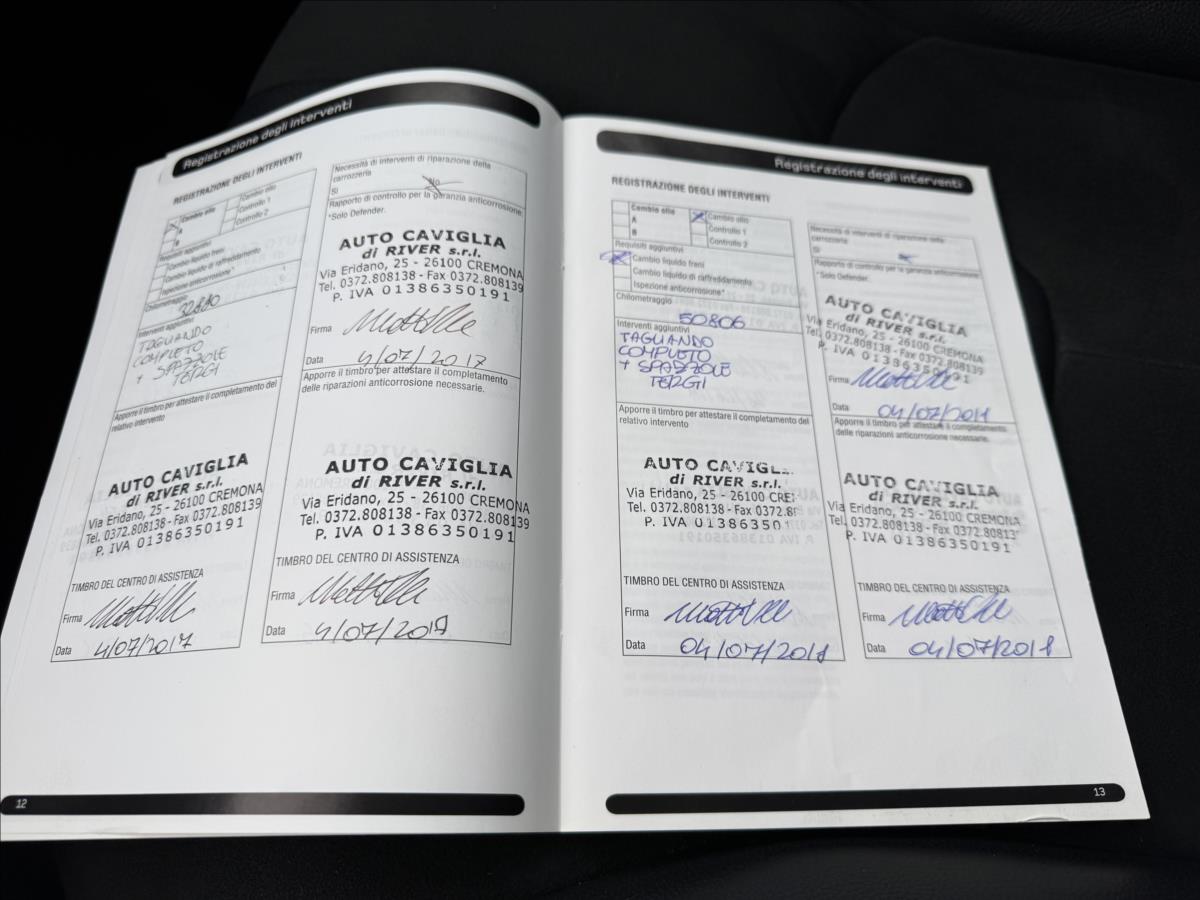 Registrazione degli interventi
REGISTRAZIONE DEGLI INTERVENTI
Cambio olio
A
B
Cambio olio
Controllo 1
Controllo 2
Requisiti aggiuntivi
Cambio liquido freni
Cambio liquido di raffreddamento
Ispezione anticorrosione*
Chilometraggio
32880
Interventi aggiuntivi
TAGLIANDO
COMPLETO
+ SPAZZOLE
TERGI
Apporre il timbro per attestare il completamento del
relativo intervento
AUTO CAVIGLIA
di RIVER s.r.l.
Via Eridano, 25 - 26100 CREMONA
Tel. 0372.808138 - Fax 0372.808139
P. IVA 01386350191
TIMBRO DEL CENTRO DI ASSISTENZA
Firma
Data 4/07/2017
Necessità di interventi di riparazione della
carrozzeria
Si No
Rapporto di controllo per la garanzia anticorrosione.
*Solo Defender.
AUTO CAVIGLIA
di RIVER s.r.l.
Via Eridano, 25 - 26100 CREMONA
Tel. 0372.808138 - Fax 0372.808139
P. IVA 01386350191
Firma
Data 4/07/2017
Apporre il timbro per attestare il completamento
delle riparazioni anticorrosione necessarie.
AUTO CAVIGLIA
di RIVER s.r.l.
Via Eridano, 25 - 26100 CREMONA
Tel. 0372.808138 - Fax 0372.808139
P. IVA 01386350191
TIMBRO DEL CENTRO DI ASSISTENZA
Firma
Data
12
Registrazione degli interventi
REGISTRAZIONE DEGLI INTERVENTI
Cambio olio
A
B
Cambio olio
Controllo 1
Controllo 2
Requisiti aggiuntivi
Cambio liquido freni
Cambio liquido di raffreddamento
Ispezione anticorrosione*
Chilometraggio
50806
Interventi aggiuntivi
TAGLIANDO
COMPLETO
+ SPAZZOLE
TERGI
Apporre il timbro per attestare il completamento del
relativo intervento
AUTO CAVIGL
di RIVER s.r.l.
Via Eridano, 25 - 26100 CRE
Tel. 0372.808138 - Fax 0372.8
P. IVA 013863501
TIMBRO DEL CENTRO DI ASSISTENZA
Firma
Data 04/07/2018
Necessità di interventi di riparazione della
carrozzeria
Si
Rapporto di controllo per la garanzia anticorrosione
*Solo Defender.
AUTO CAVIGLIA
di RIVER s.r.l.
Via Eridano, 25 - 26100 CREMONA
Tel. 0372.808138 - Fax 0372.808139
P. IVA 01386350191
Firma
Data 04/07/2018
Apporre il timbro per attestare il completamento
delle riparazioni anticorrosione necessarie.
AUTO CAVIGLIA
di RIVER s.r.l.
Via Eridano, 25 - 26100 CREMONA
Tel. 0372.808138 - Fax 0372.80813
P. IVA 01386350191
TIMBRO DEL CENTRO DI ASSISTENZA
Firma
Data 04/07/2018
13